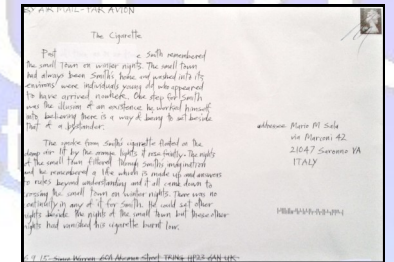 BY AIR MAIL - PAR AVION
The Cigarette
Past Smith remembered
the small town on winter nights. The small town
had always been Smith's home and washed into its
environs were individuals young old who appeared
to have arrived nowhere. One step for Smith
was the illusion of an existence he worked himself
into believing there is a way of being to sit beside
that of a bystander.
The smoke from Smith's cigarette floated on the
damp air lit by the orange lights The nights
of the small town filtered through Smith's imagination
and he remembered a life which is made up and answers
to rules beyond understanding and it all came down to
crossing the small town on winter nights. There was no
in any of it for Smith. He could set other
nights beside the nights of the small town but those other
nights had vanished this cigarette burnt low.
addressee Maria M Sala
via Marconi 42
21047 Saronno VA
ITALY
9 15 Warren 60A Street